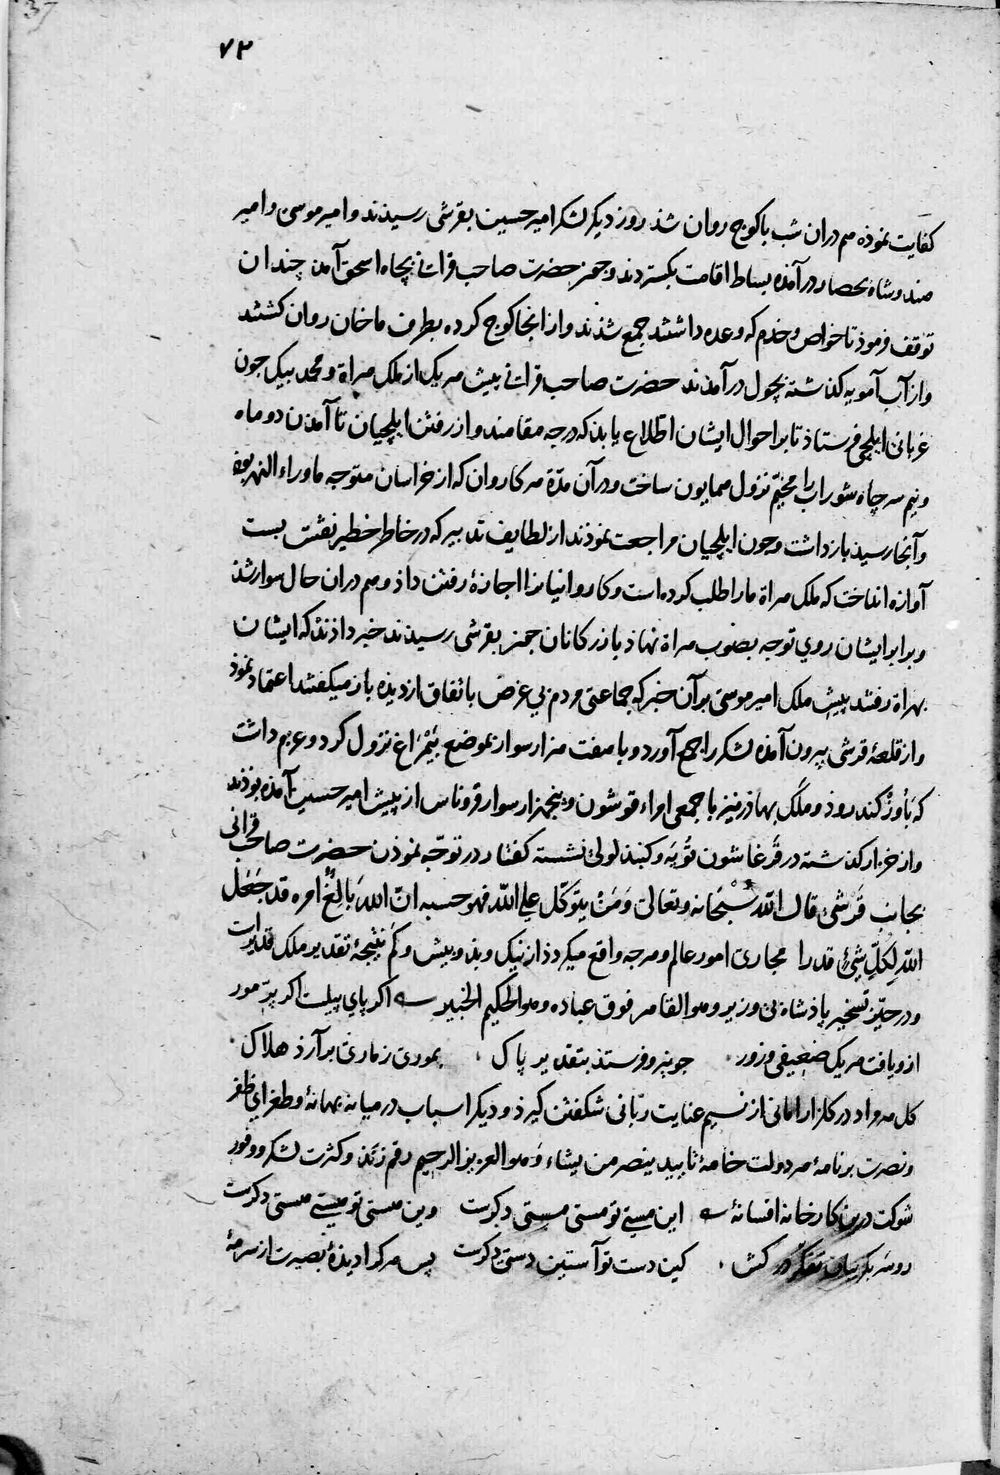 ۷۲
کفایت نموذه هم دران شب با کوچ روان شذ روز دیکر لشکر امیر حسین بقرشی رسیذند و امیر موسی و امیر
هندوشاه بحصار در آمذه بساط اقامت بکستردند و جون حضرت صاحب قرانی بچاه اسحق آمذ چندان
توقف فرموذ تا خواص و خدم که وعده داشتند جمع شذند و از انجا کوچ کرده بطرف ماخان روان کشتند
و از آب آمویه کذشته بچول در آمذند حضرت صاحب قرانی پیش هر یک از ملک هراة و محمد بیک جون
غربانی ایلچی فرستاذ تا بر احوال ایشان اطلاع یابذ که در چه مقامند و از رفتن ایلچیان تا آمذن دو ماه
و نیم سر چاه شوراب را مخیم نزول همایون ساخت و در آن مدّة هر کاروان که از خراسان متوجه ماوراء النهر بوذ
و آنجا رسیذ باز داشت و جون ایلچیان مراجعت نموذند از لطایف تدبیر که در خاطر خطیر نقش بست
آوازه انداخت که ملک هراة ما را طلب کرده است و کاروانیانرا اجازهٔ رفتن داذ و هم دران حال سوار شذ
و برابر ایشان روی توجه بصوب هراة نهاذ بازرکانان جون بقرشی رسیدند خبر داذند که ایشان
بهراة رفتند پیش ملک امیر موسی بر آن خبر که جماعتی مردم بی غرض باتفاق از دیذه باز میکفتند اعتماد نموذ
و از قلعهٔ قرشی بیرون آمذه لشکر را جمع آورد و با هفت هزار سوار بموضع بیمراغ نزول کرد و عزم داشت
که باوزکند روذ و ملک بهاذر نیز با جمعی امراء قوشون و پنجهزار سوار قروناس از پیش امیر حسین آمذه بوذند
و از خزار کذشته در قرغاشون توبه و کنبذ لولی نشسته کفتار در توجّه نموذن حضرت صاحب قرانی
بجانب قرشی قال الله سبحانه و تعالی وَمَنْ یتوکّل علی الله فهو حسبه انّ الله بالغ امره قد جَعَل
الله لِکلّ شیءٍ قدرا مجاری امور عالم و هرجه واقع میکردذ از نیک و بذ و بیش و کم نتیجهٔ تقدیر ملک قدیر است
و در حیّز تسخیر پاذشاه بی وزیر و هو القاهر فوق عباده و هو الحکیم الخبیر اکر پای پیلست اکر پرّ مور
ازو یافت هر یک ضعیفی و زور جو نیرو فرستذ بتقدیر پاک بموری ز ماری بر آرذ هلاک
کل مراد در کلزار امانی از نسیم عنایت ربّانی شکفتن کیرذ و دیکر اسباب در میانه بهانهٔ و طغرای ظفر
و نصرت بر نامهٔ هر دولت خامهٔ تایید ینصر من یشاء و هو العزیز الرحیم رقم زنذ و کثرت لشکر و وفور
شوکت درین کارخانه افسانهٔ این هستی تو هستی هستی دکرست وین مستی تو مستی مستی دکرست
رو سر بکریبان تفکّر در کش کین دست تو آستین دستی دکرست پس هر کرا دیذهٔ بصیرت از سرمهٔ